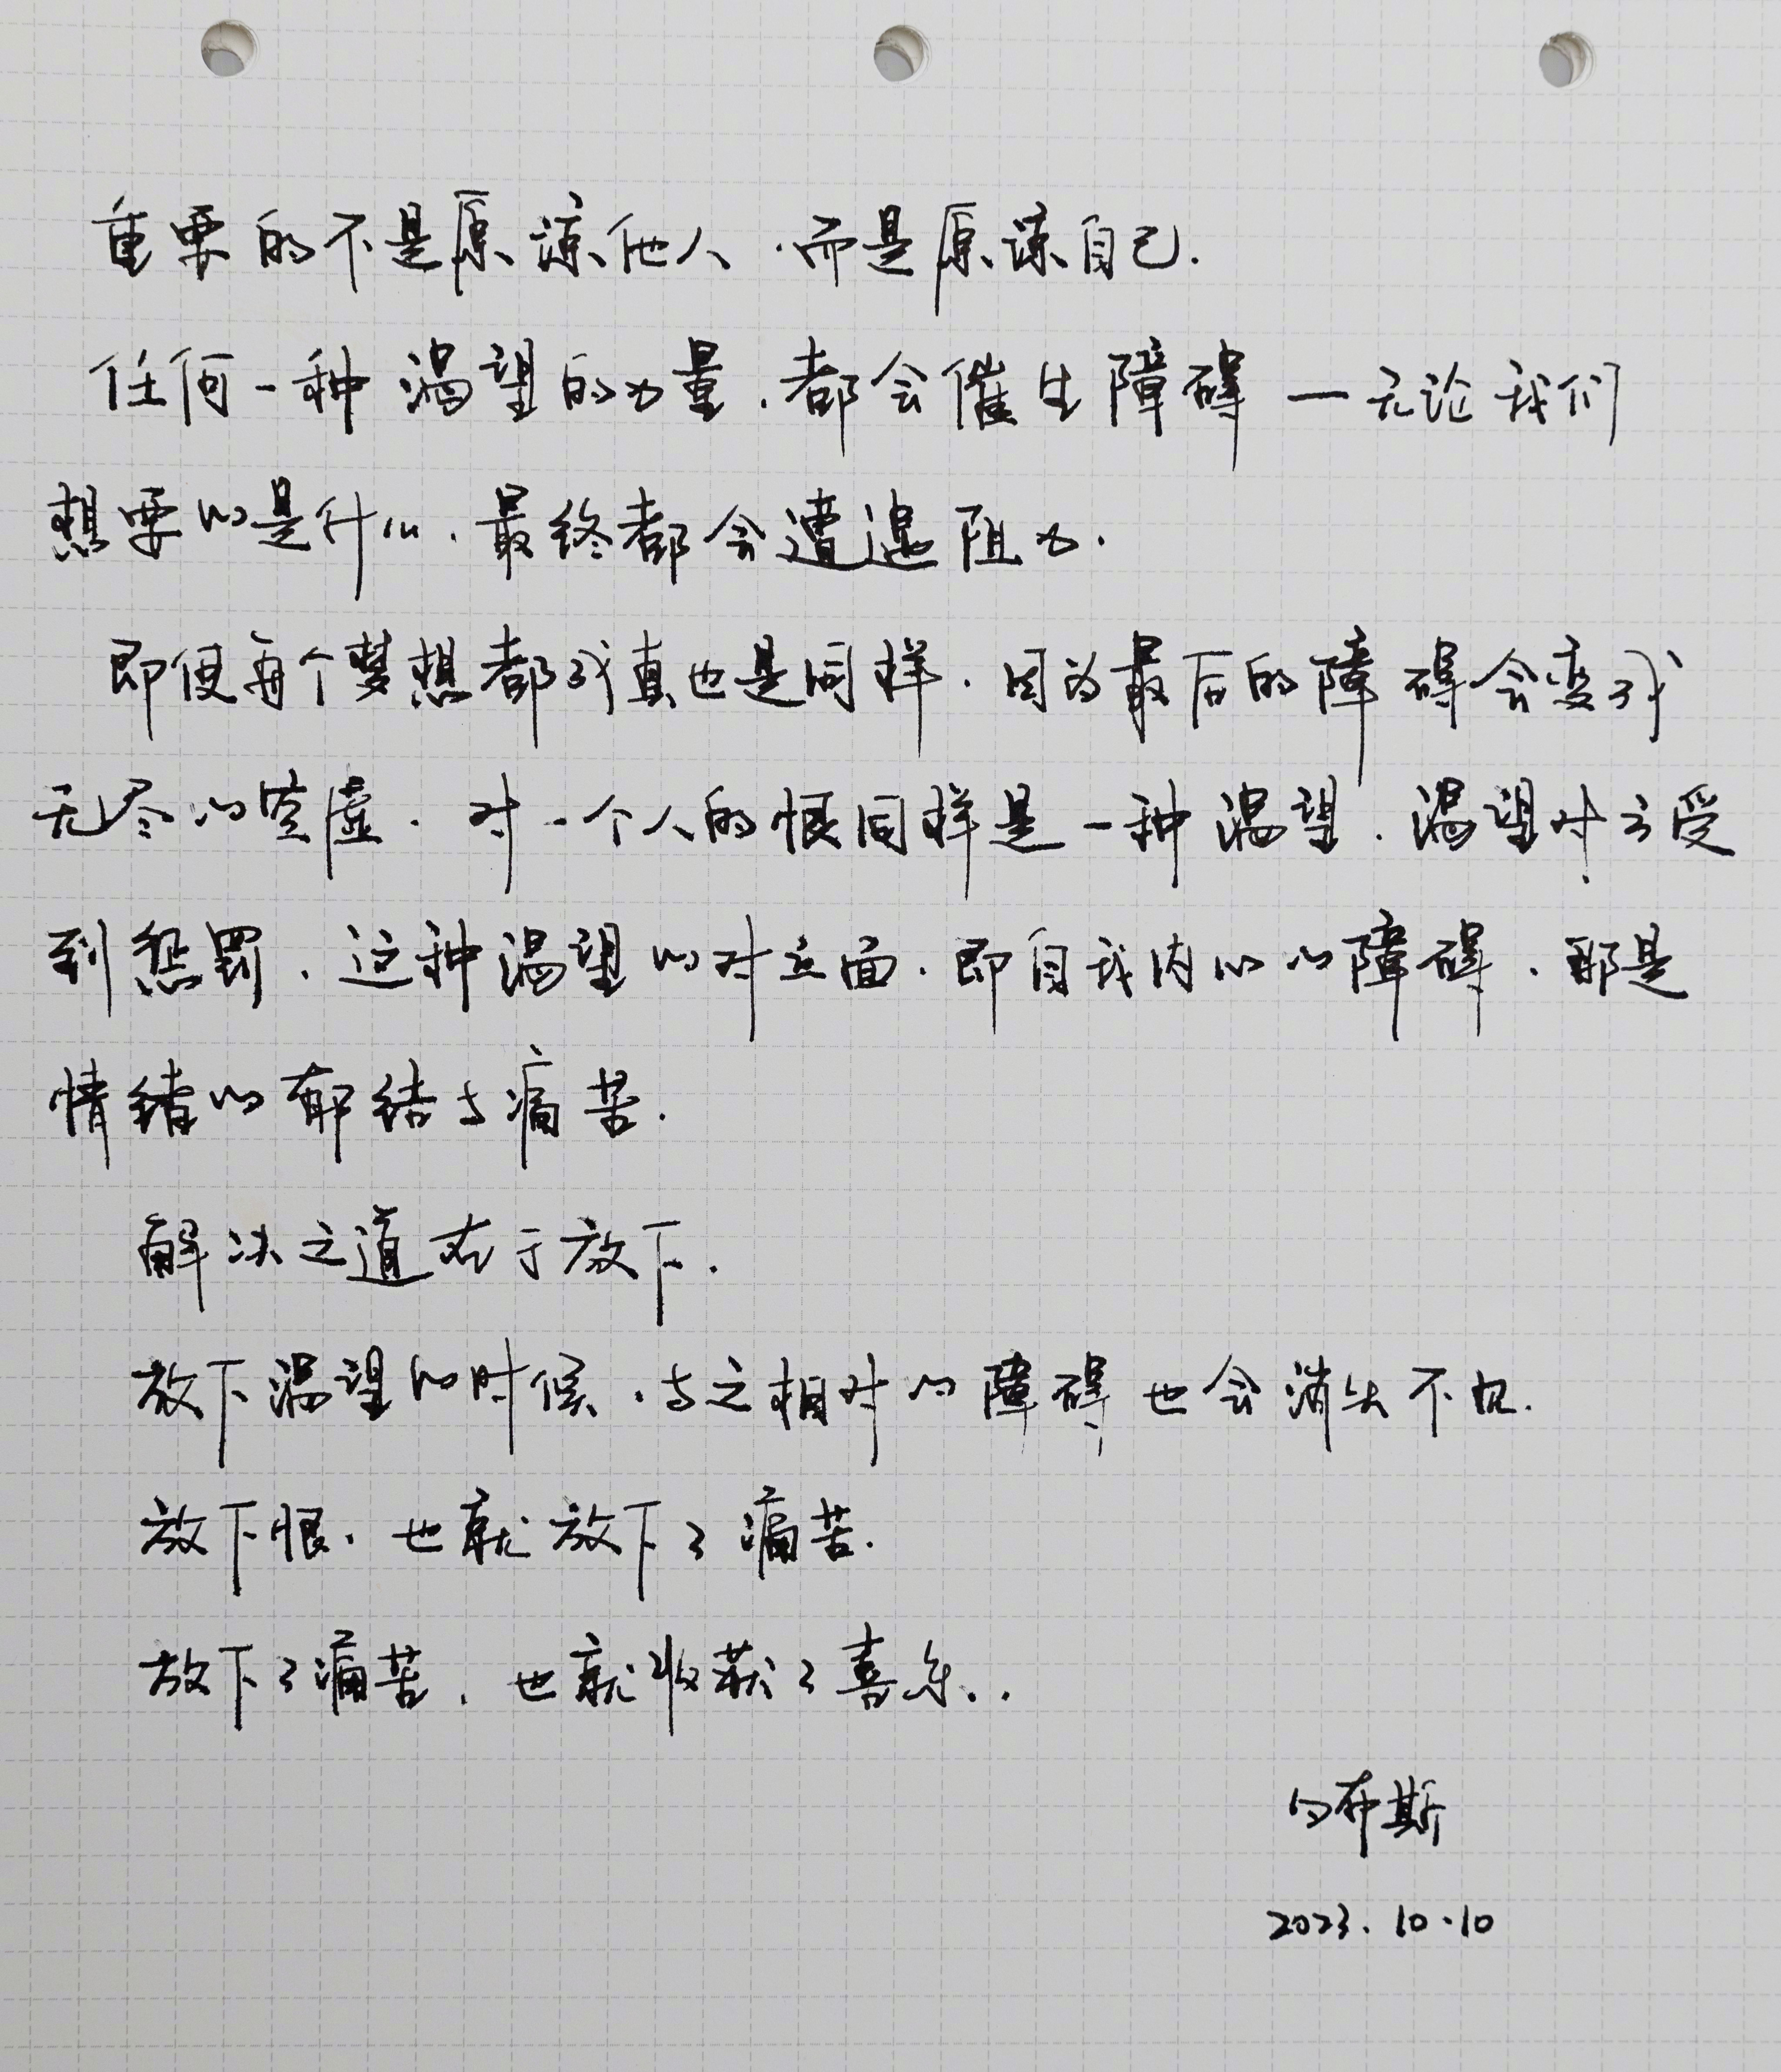 重要的不是原谅他人，而是原谅自己.
任何一种渴望的力量，都会催生障碍—无论我们
想要的是什么，最终都会遭遇阻力.
即便每个梦想都成真也是同样，因为最后的障碍会变成
无尽的空虚. 对一个人的恨同样是一种渴望，渴望对方受
到惩罚，这种渴望的对立面，即自我内心的障碍，那是
情绪的郁结与痛苦.
解决之道在于放下.
放下渴望的时候，与之相对的障碍也会消失不见.
放下恨，也就放下了痛苦.
放下了痛苦，也就收获了喜乐..
白希斯
2023.10.10